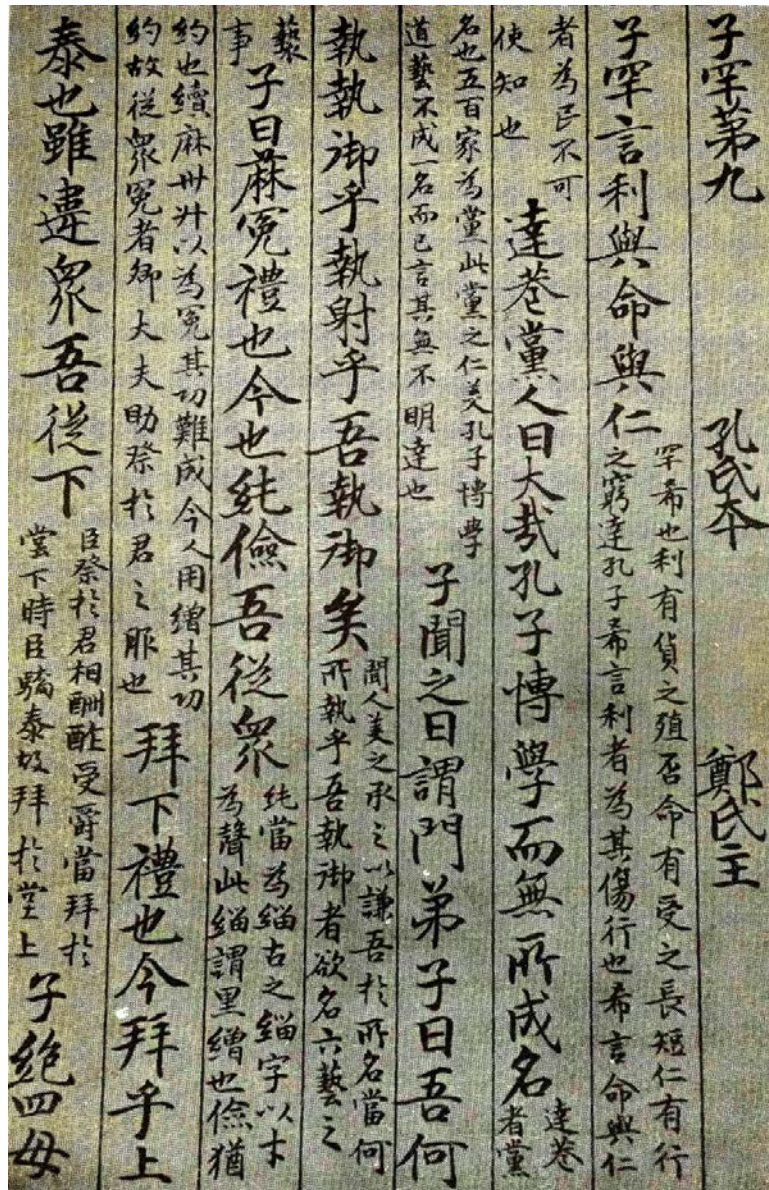 子罕第九 孔氏本 鄭氏主
子罕言利與命與仁 罕希也利有貨之殖否命有受之長短仁有行 之窮達孔子希言利者為其傷行也希言命與仁
者為民不可 使知也 達巷黨人曰大哉孔子博學而無所成名 達巷 者黨
名也五百家為黨此黨之仁美孔子博學 道藝不成一名而已言其無不明達也 子聞之曰謂門弟子曰吾何
執執御乎執射乎吾執御矣 聞人美之承之以謙吾於所名當何 所執乎吾執御者欲名六藝之
藝 事 子曰麻冕禮也今也純儉吾從眾 純當為緇古之緇字以才 為聲此緇謂黑繒也儉猶
約也績麻卅升以為冕其功難成今人用繒其功 約故從眾冕者卿大夫助祭於君之服也 拜下禮也今拜乎上
泰也雖違眾吾從下 臣祭於君相酬酢受爵當拜於 堂下時臣驕泰故拜於堂上 子絕四毋